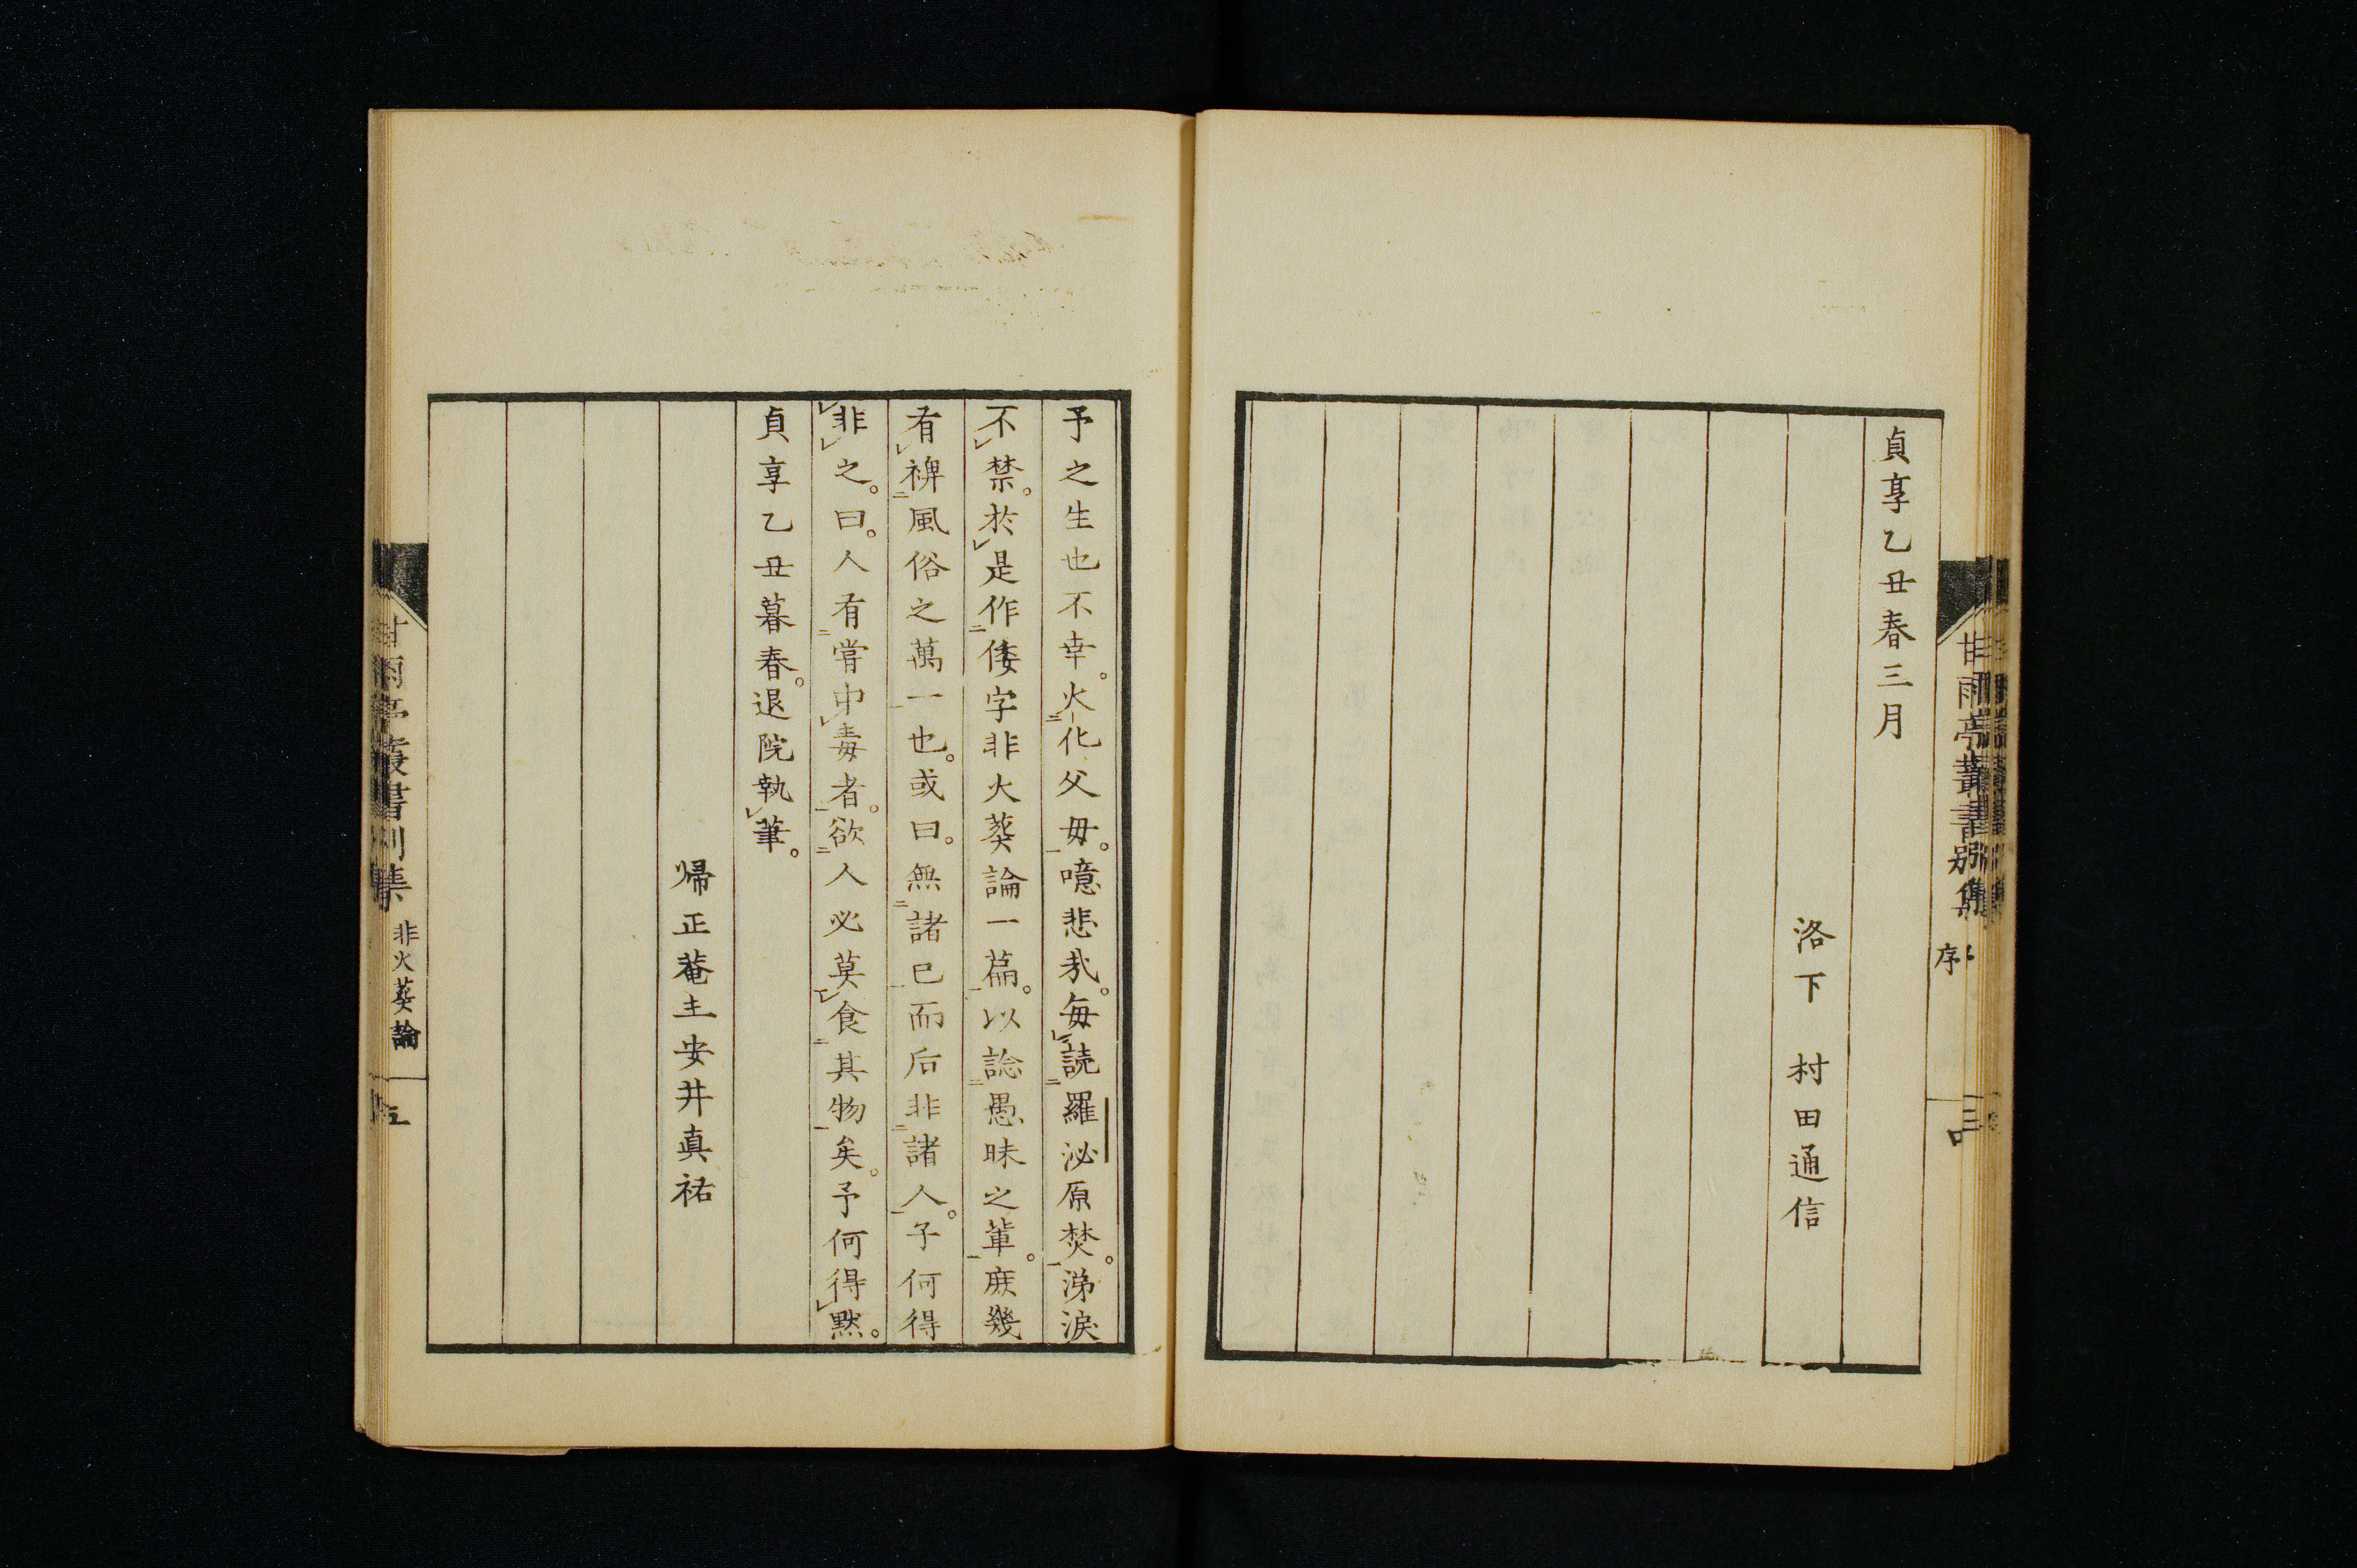 貞享乙丑春三月
洛下 村田通信
甘雨亭叢書別集 序
予之生也不幸。火化父母。噫悲哉。每読羅泌原焚。涕淚
不禁。於是作倭字非火葬論一篇。以諗愚昧之輩。庶幾
有裨風俗之萬一也。或曰。無諸已而后非諸人。子何得
非之。曰。人有嘗中毒者。欲人必莫食其物矣。予何得默。
貞享乙丑暮春。退院執筆。
帰正菴主安井真祐
甘雨亭叢書別集 非火葬論